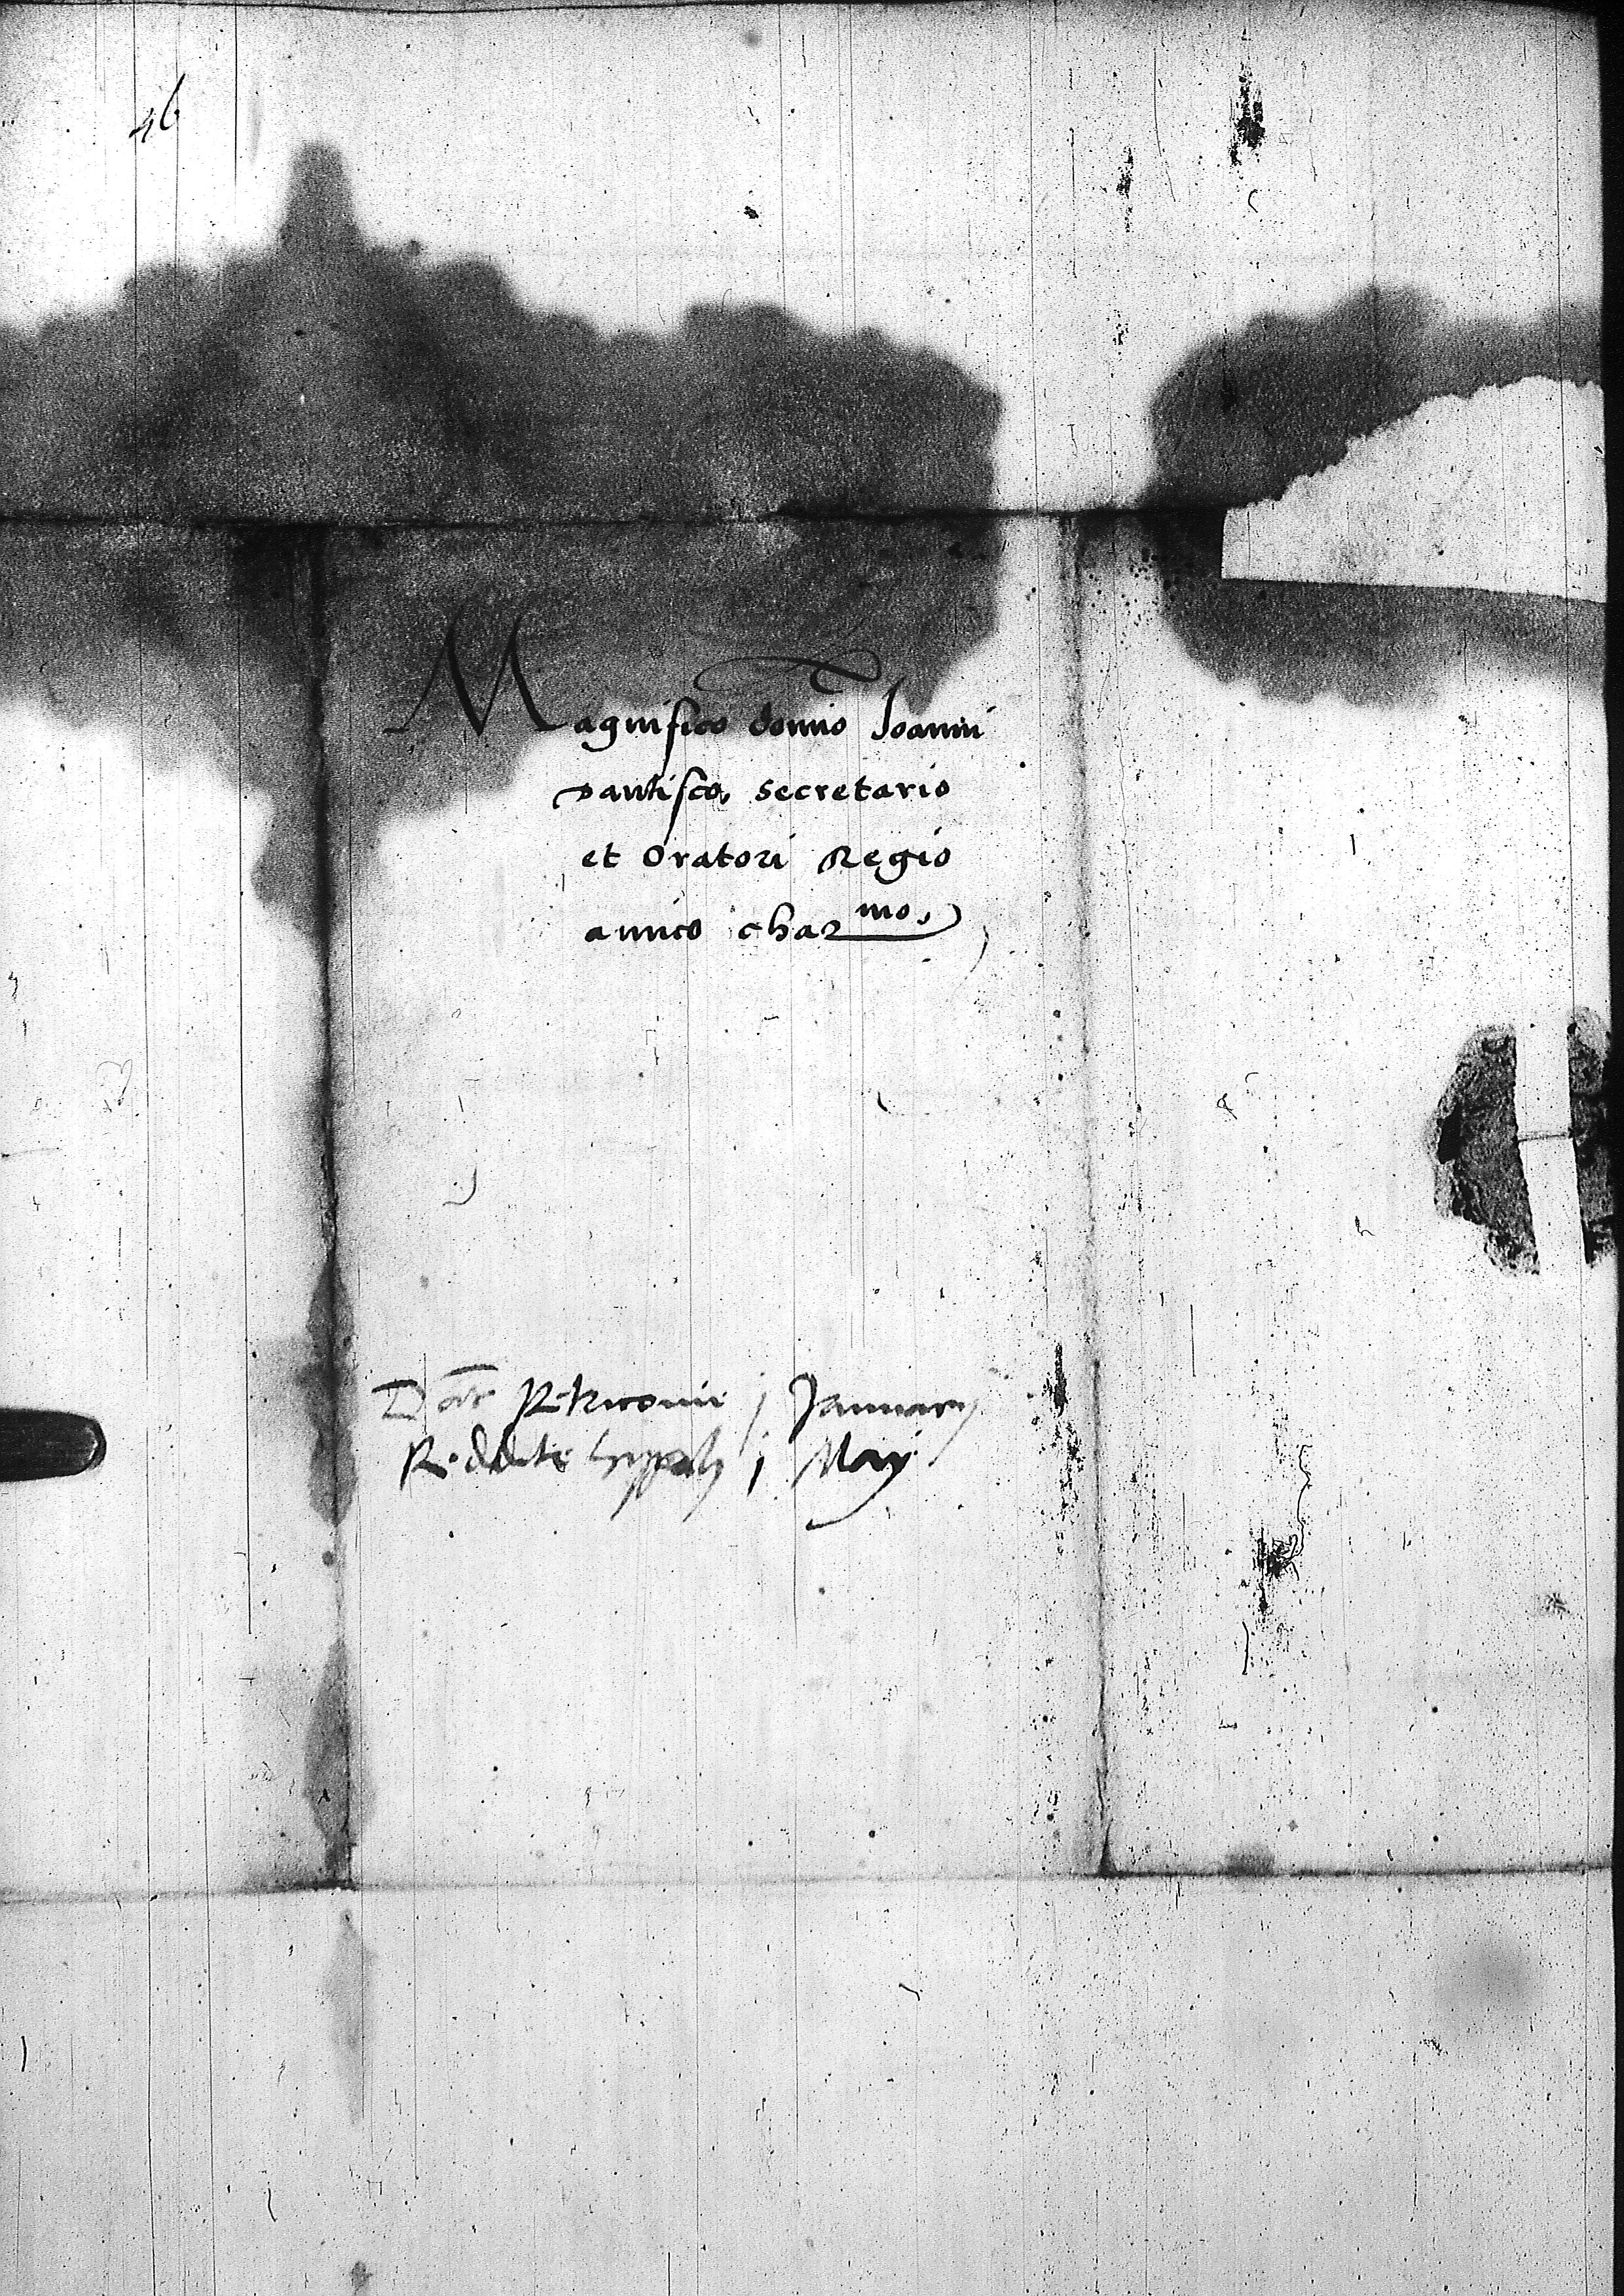 46
Magnifico domino Ioanni
Dantisco, secretario
et Oratori Regio
amico charmo,
Date Petricovie j Januarij
Reddite hyspali j Maij